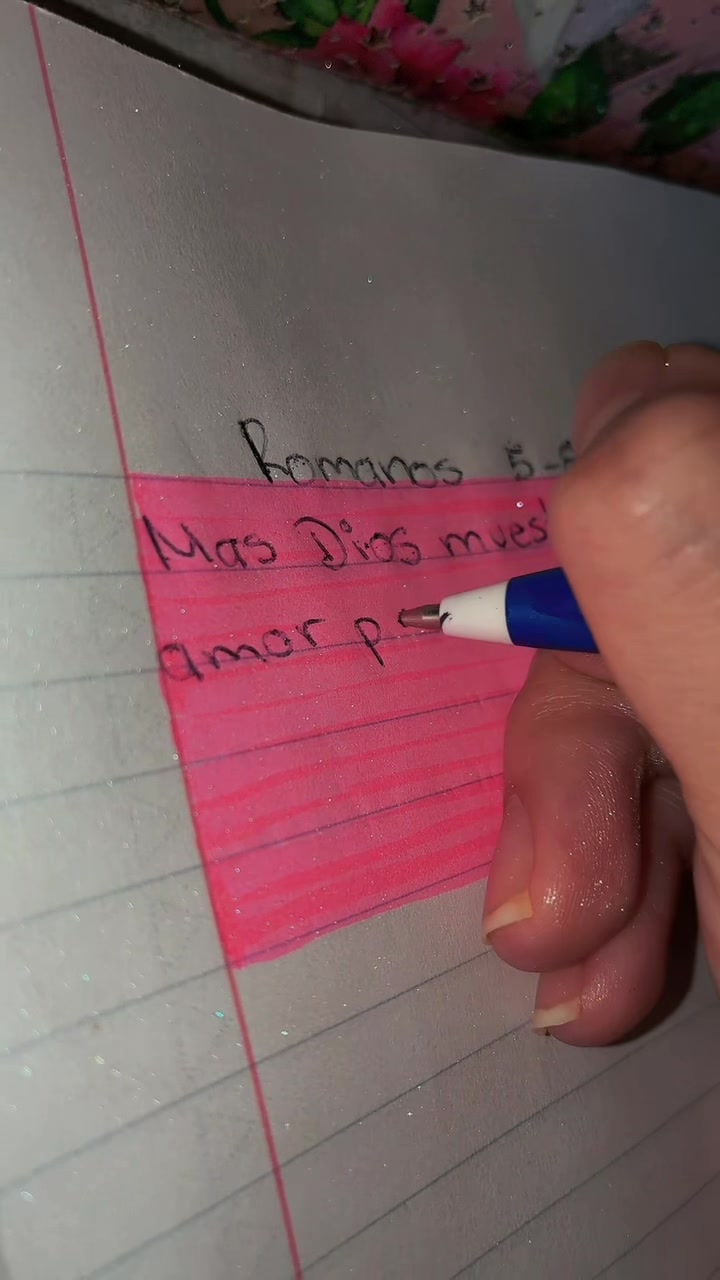 Romanos 5-
Mas Dios mues
amor p